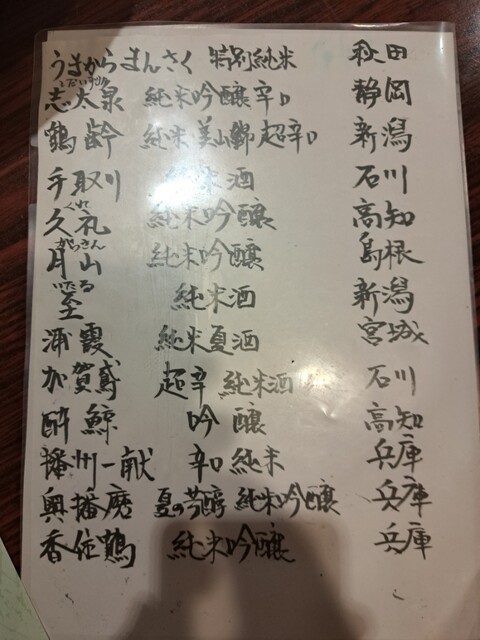 うまからまんさく 特別純米 秋田
志太泉 純米吟醸辛口 静岡
鶴齢 純米 美山錦 超辛口 新潟
手取川 純米酒 石川
くれ
久礼 純米吟醸 高知
がっさん
月山 純米吟醸 島根
いたる
至 純米酒 新潟
浦霞 純米夏酒 宮城
加賀鳶 超辛 純米酒 石川
酔鯨 吟醸 高知
播州一献 辛口純米 兵庫
奥播磨 夏の芳醇 純米吟醸 兵庫
香住鶴 純米吟醸 兵庫